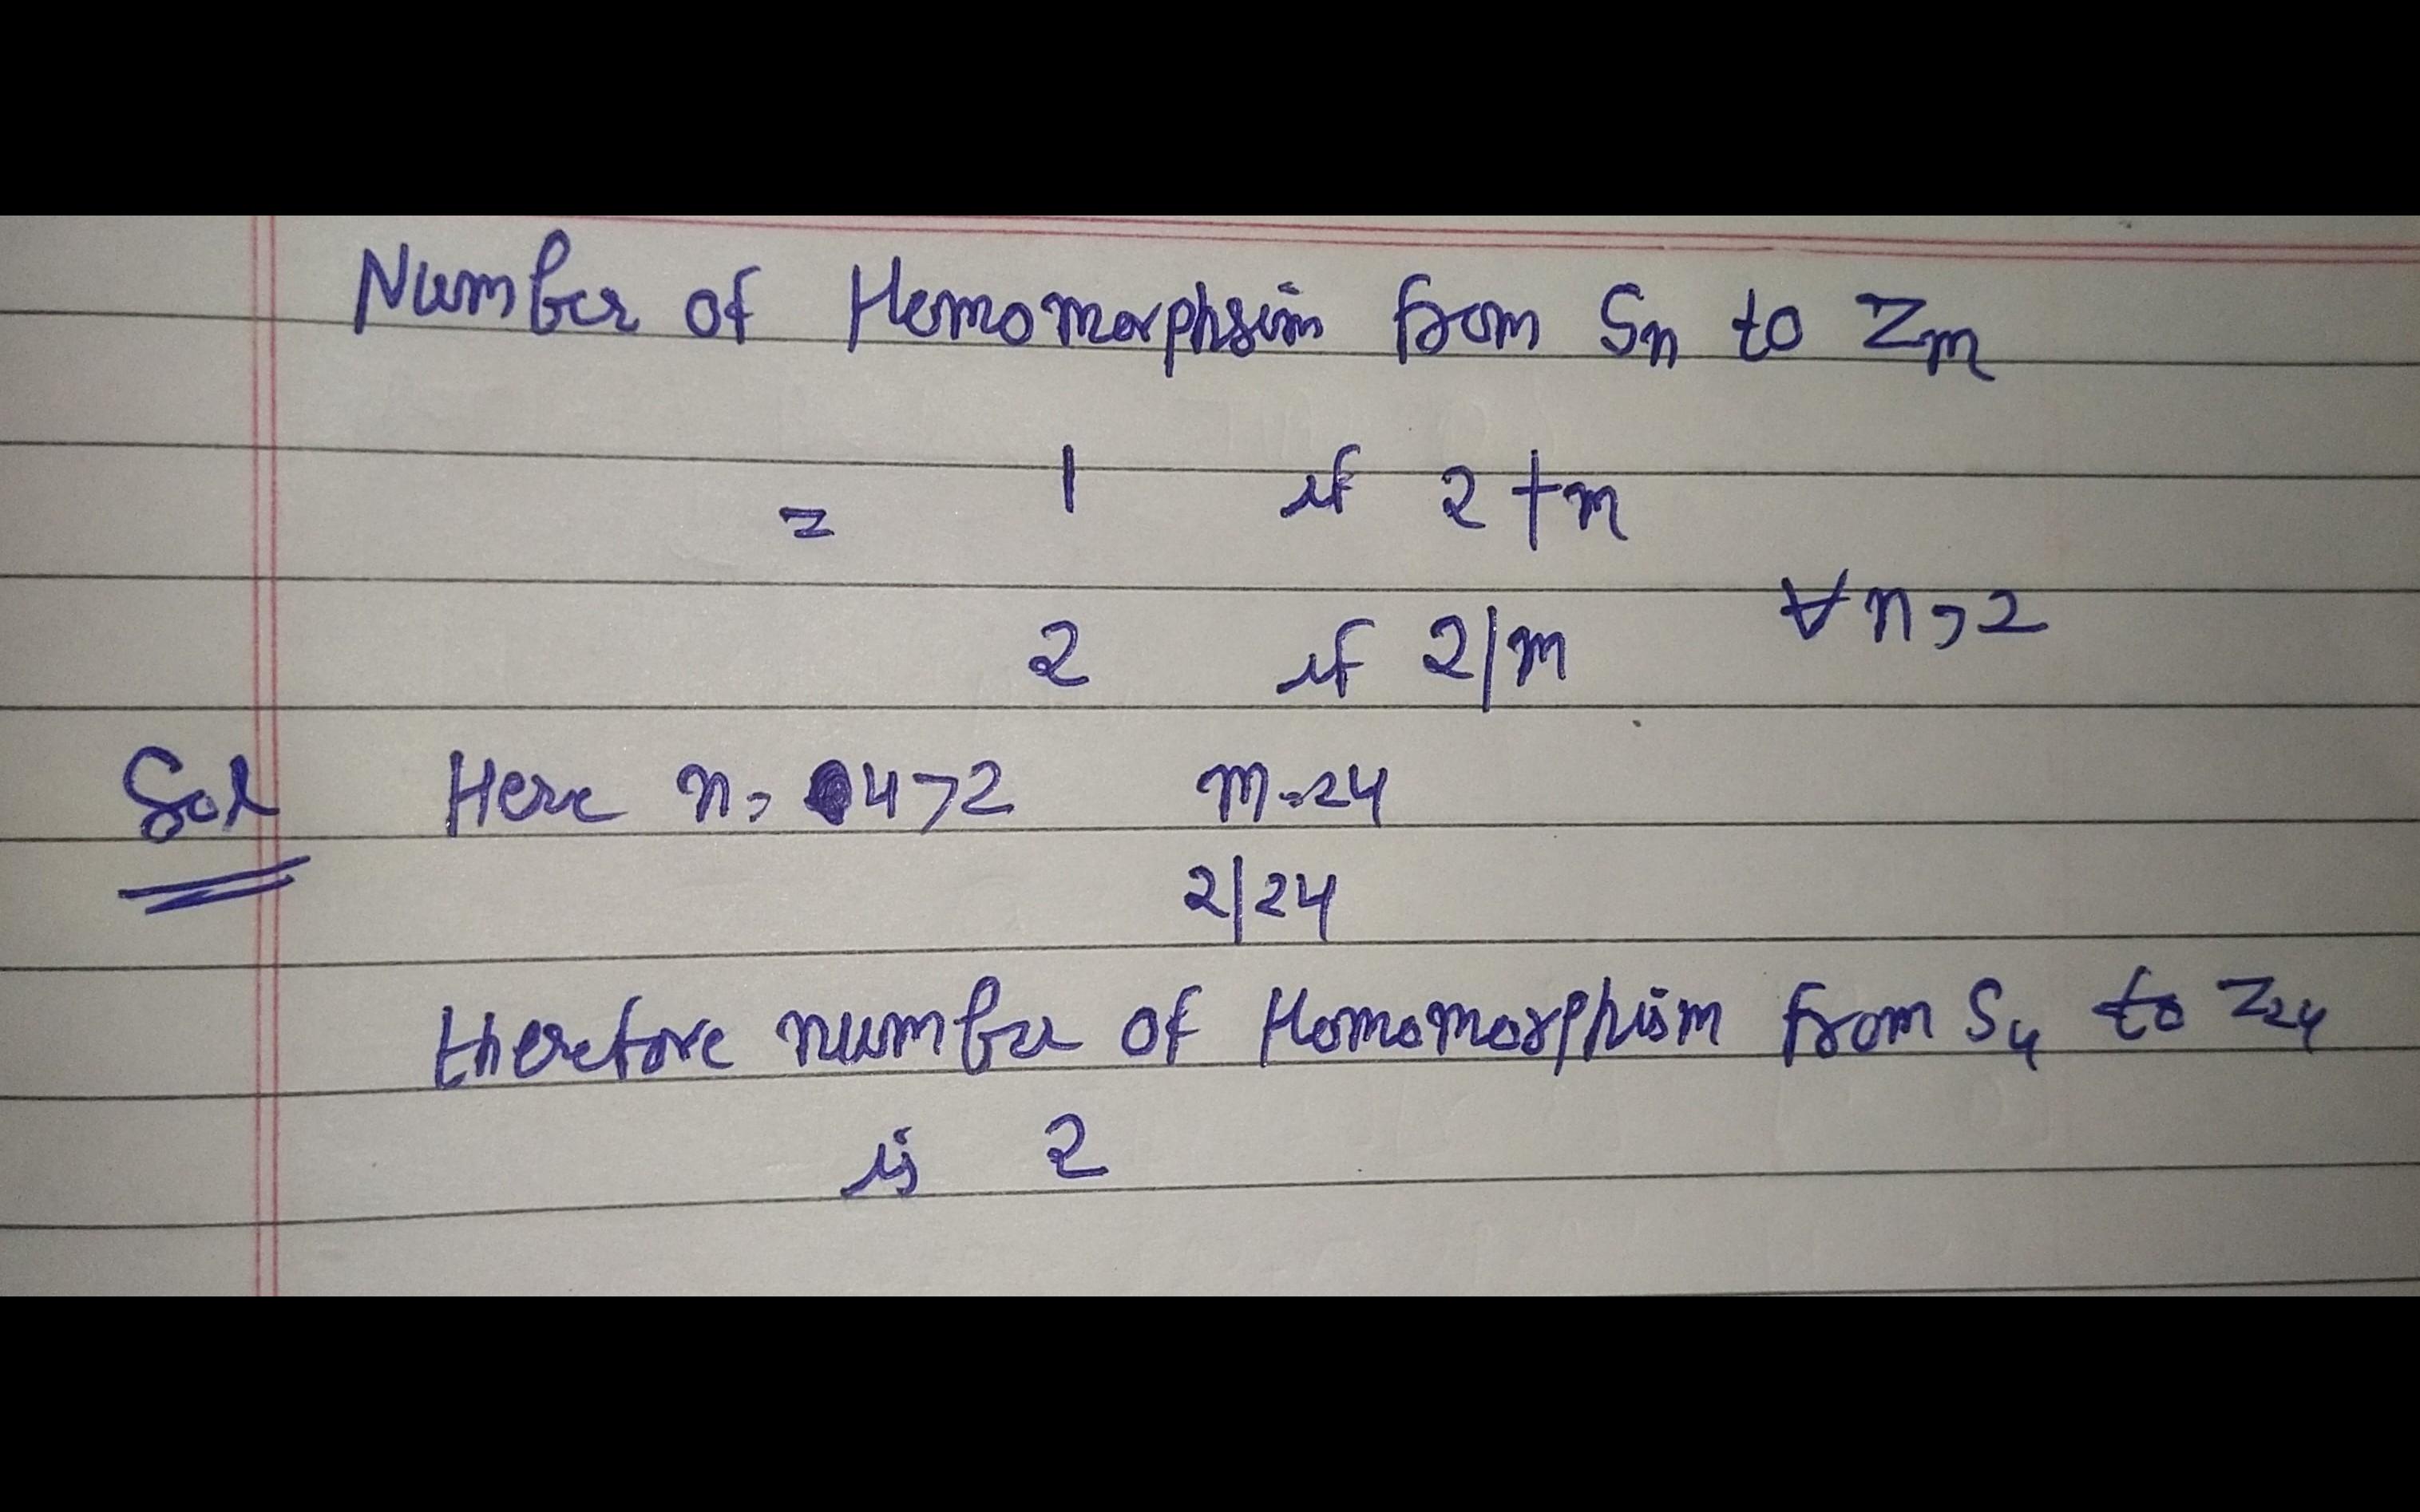 Number of Homomorphsim from Sn to Zm
= 1 if 2 ∤ m
2 if 2|m ∀ n > 2
Sol Here n = 4 > 2 m = 24
2|24
therefore number of Homomorphism from S4 to Z24
is 2